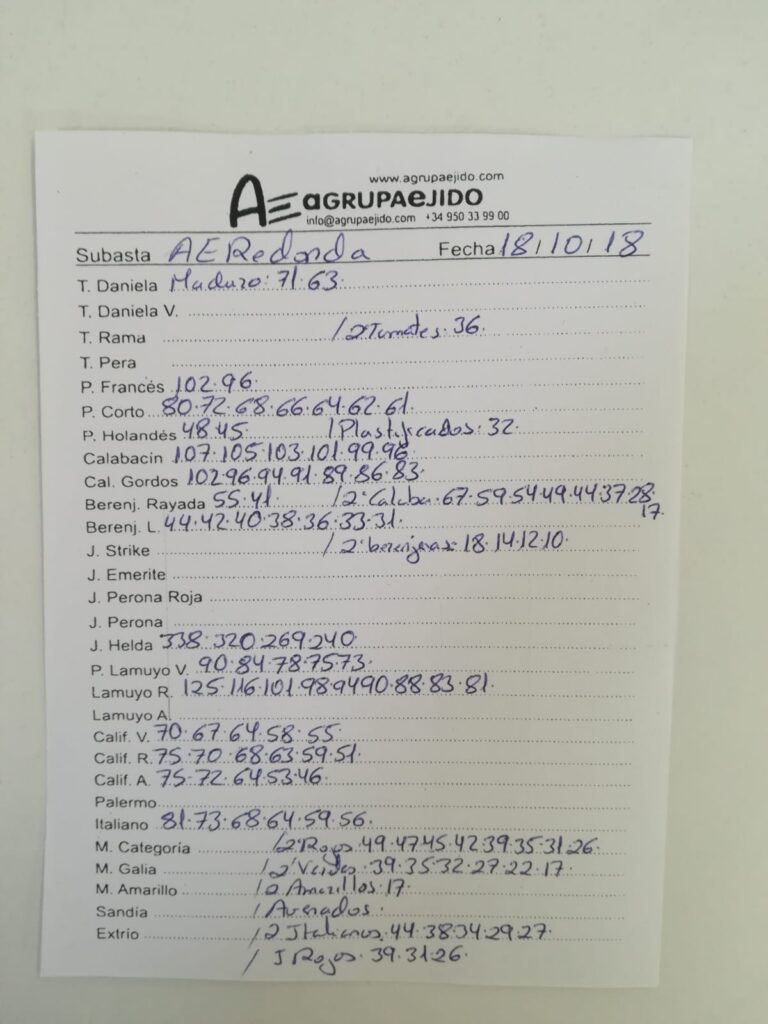 www.agrupaejido.com
AE AGRUPAEJIDO
info@agrupaejido.com +34 950 33 99 00
Subasta AE Redonda Fecha 18/10/18
T. Daniela Maduro: 71·63·
T. Daniela V.
T. Rama /2ª Tomates· 36·
T. Pera
P. Francés 102·96·
P. Corto 80·72·68·66·64·62·61·
P. Holandés 48·45· /Plastificados: 32·
Calabacín 107·105·103·101·99·96
Cal. Gordos 102·96·94·91·89·86·83·
Berenj. Rayada 55·41· /2ª Calaba· 67·59·54·49·44·37·28·
17·
Berenj. L. 44·42·40·38·36·33·31·
J. Strike /2ª berenjenas· 18·14·12·10·
J. Emerite
J. Perona Roja
J. Perona
J. Helda 338·320·269·240
P. Lamuyo V. 90·84·78·75·73·
Lamuyo R. 125·116·101·98·94·90·88·83·81·
Lamuyo A.
Calif. V. 70·67·64·58·55·
Calif. R. 75·70·68·63·59·51·
Calif. A. 75·72·64·53·46·
Palermo
Italiano 81·73·68·64·59·56·
M. Categoría /2ª Rojos· 49·47·45·42·39·35·31·26·
M. Galia /2ª Verdes· 39·35·32·27·22·17·
M. Amarillo /2 Amarillos·17·
Sandía /Averados·
Extrio /2 Italianos, 44·38·34·29·27·
/ J Rojos· 39·31·26·